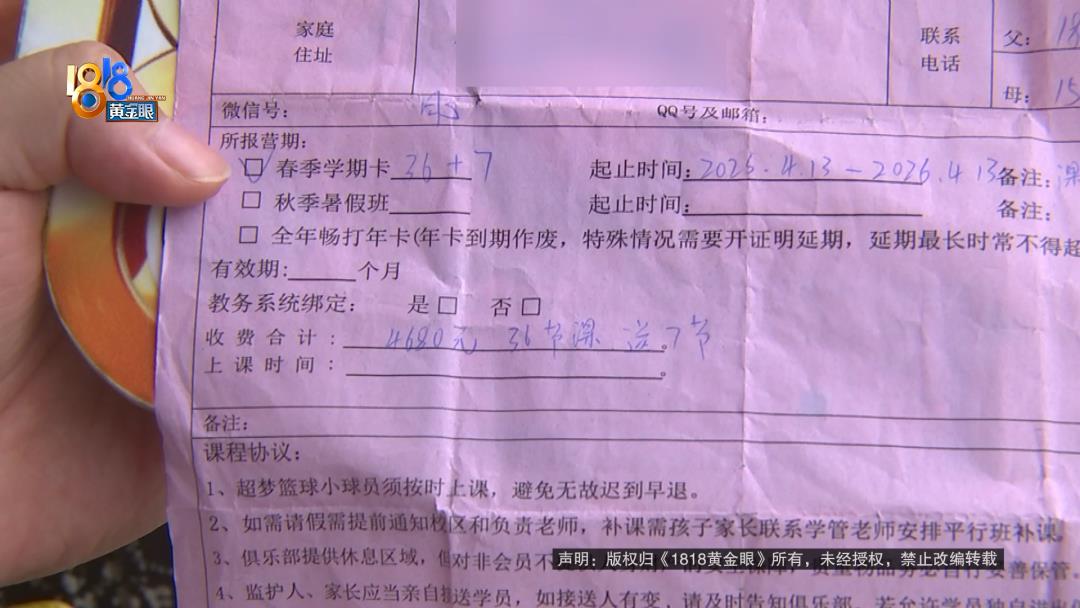 家庭
住址
联系
电话
父: 18
母: 15
1818
HUANG JIN YAN
黄金眼
微信号:
QQ号及邮箱:
所报营期:
☑ 春季学期卡 36+7 起止时间: 2025.4.13—2026.4.13 备注: 课
□ 秋季暑假班 起止时间: 备注:
□ 全年畅打年卡(年卡到期作废，特殊情况需要开证明延期，延期最长时常不得超
有效期: 个月
教务系统绑定: 是□ 否□
收费合计: 4680元 36节课 送7节。
上课时间: 。
备注:
课程协议:
1、超梦篮球小球员须按时上课，避免无故迟到早退。
2、如需请假需提前通知校区和负责老师，补课需孩子家长联系学管老师安排平行班补课。
3、俱乐部提供休息区域，但对非会员不 善保管。
声明：版权归《1818黄金眼》所有，未经授权，禁止改编转载
4、监护人、家长应当亲自接送学员，如接送人有变，请及时告知俱乐部。若允许学员独自进出